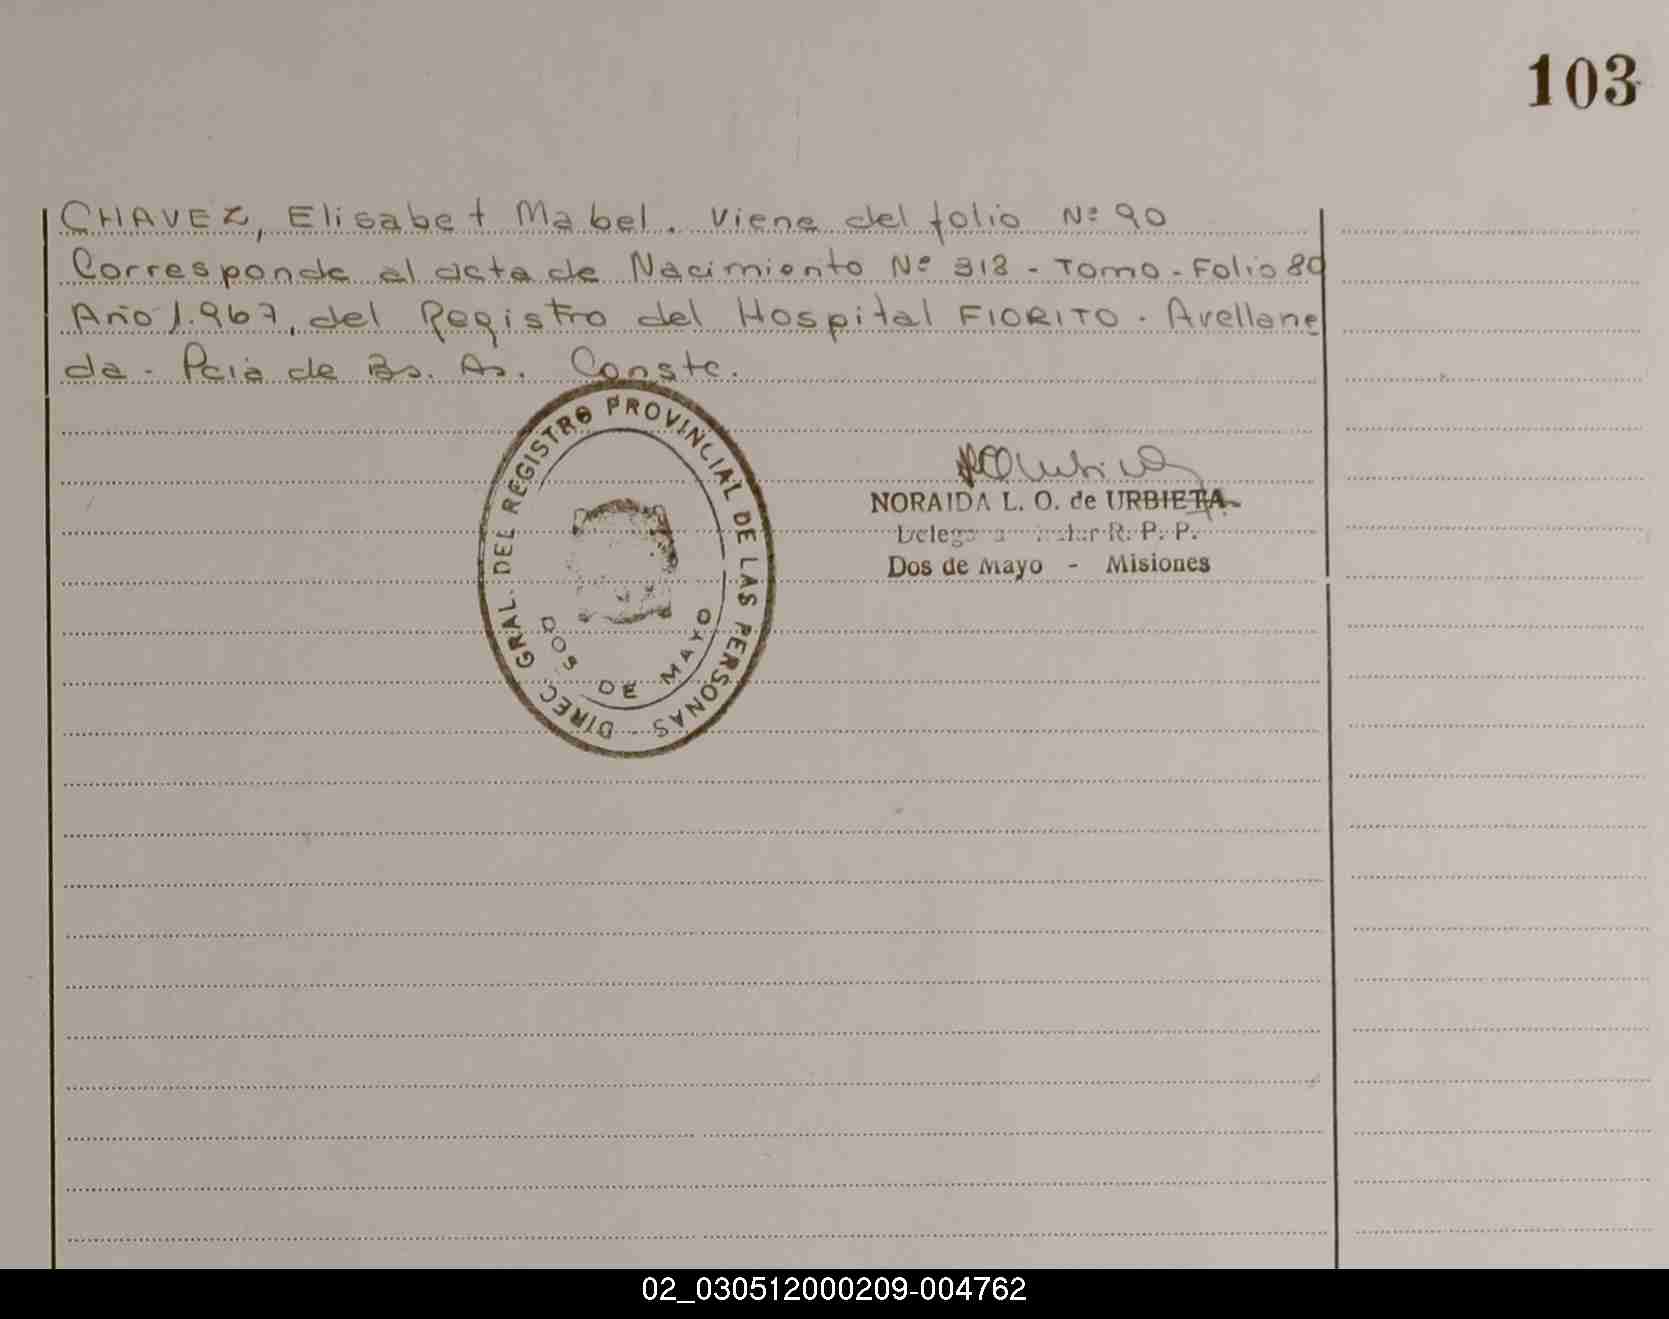 103
CHAVEZ, Elisabet Mabel. Viene del folio Nº 90
Corresponde al acta de Nacimiento Nº 318 - Tomo - Folio 80
Año 1.967, del Registro del Hospital FIORITO - Avellane
da - Pcia de Bs. As. Conste.
DIREC. GRAL. DEL REGISTRO PROVINCIAL DE LAS PERSONAS -
DOS DE MAYO
NORAIDA L. O. de URBIETA
R. P. P.
Dos de Mayo - Misiones
02_030512000209-004762